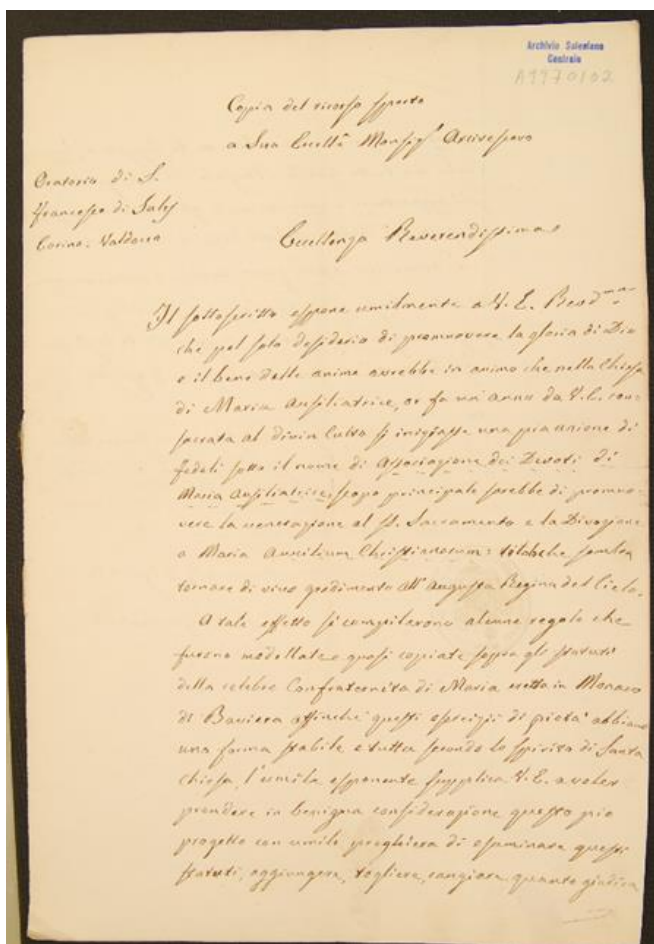 Archivio Salesiano
Centrale
A1970102
Copia del ricorso sporto
a Sua Eccell.ª Monsig.r Arcivescovo
Oratorio di S.
Francesco di Sales
Torino-Valdocco
Eccellenza Reverendissima
Il sottoscritto espone umilmente a V. E. Revd.ma
che pel solo desiderio di promuovere la gloria di Dio
e il bene delle anime avrebbe in animo che nella Chiesa
di Maria Ausiliatrice, or fa un anno da V. E. con-
sacrata al divin Culto si iniziasse una pia unione di
fedeli sotto il nome di Associazione dei Devoti di
Maria Ausiliatrice: scopo principale sarebbe di promuo-
vere la venerazione al SS. Sacramento e la Divozione
a Maria Auxilium Christianorum: titolo che sembra
tornare di vivo gradimento all'Augusta Regina del Cielo.
A tale effetto si compilarono alcune regole che
furono modellate e quasi copiate sopra gli statuti
della celebre Confraternita di Maria eretta in Monaco
di Baviera affinché questi esercizi di pietà abbiano
una forma stabile e tutta secondo lo spirito di Santa
Chiesa, l'umile esponente supplica V. E. a voler
prendere in benigna considerazione questo pio
progetto con umile preghiera di esaminare questi
statuti, aggiungere, togliere, cangiare, quanto giudica